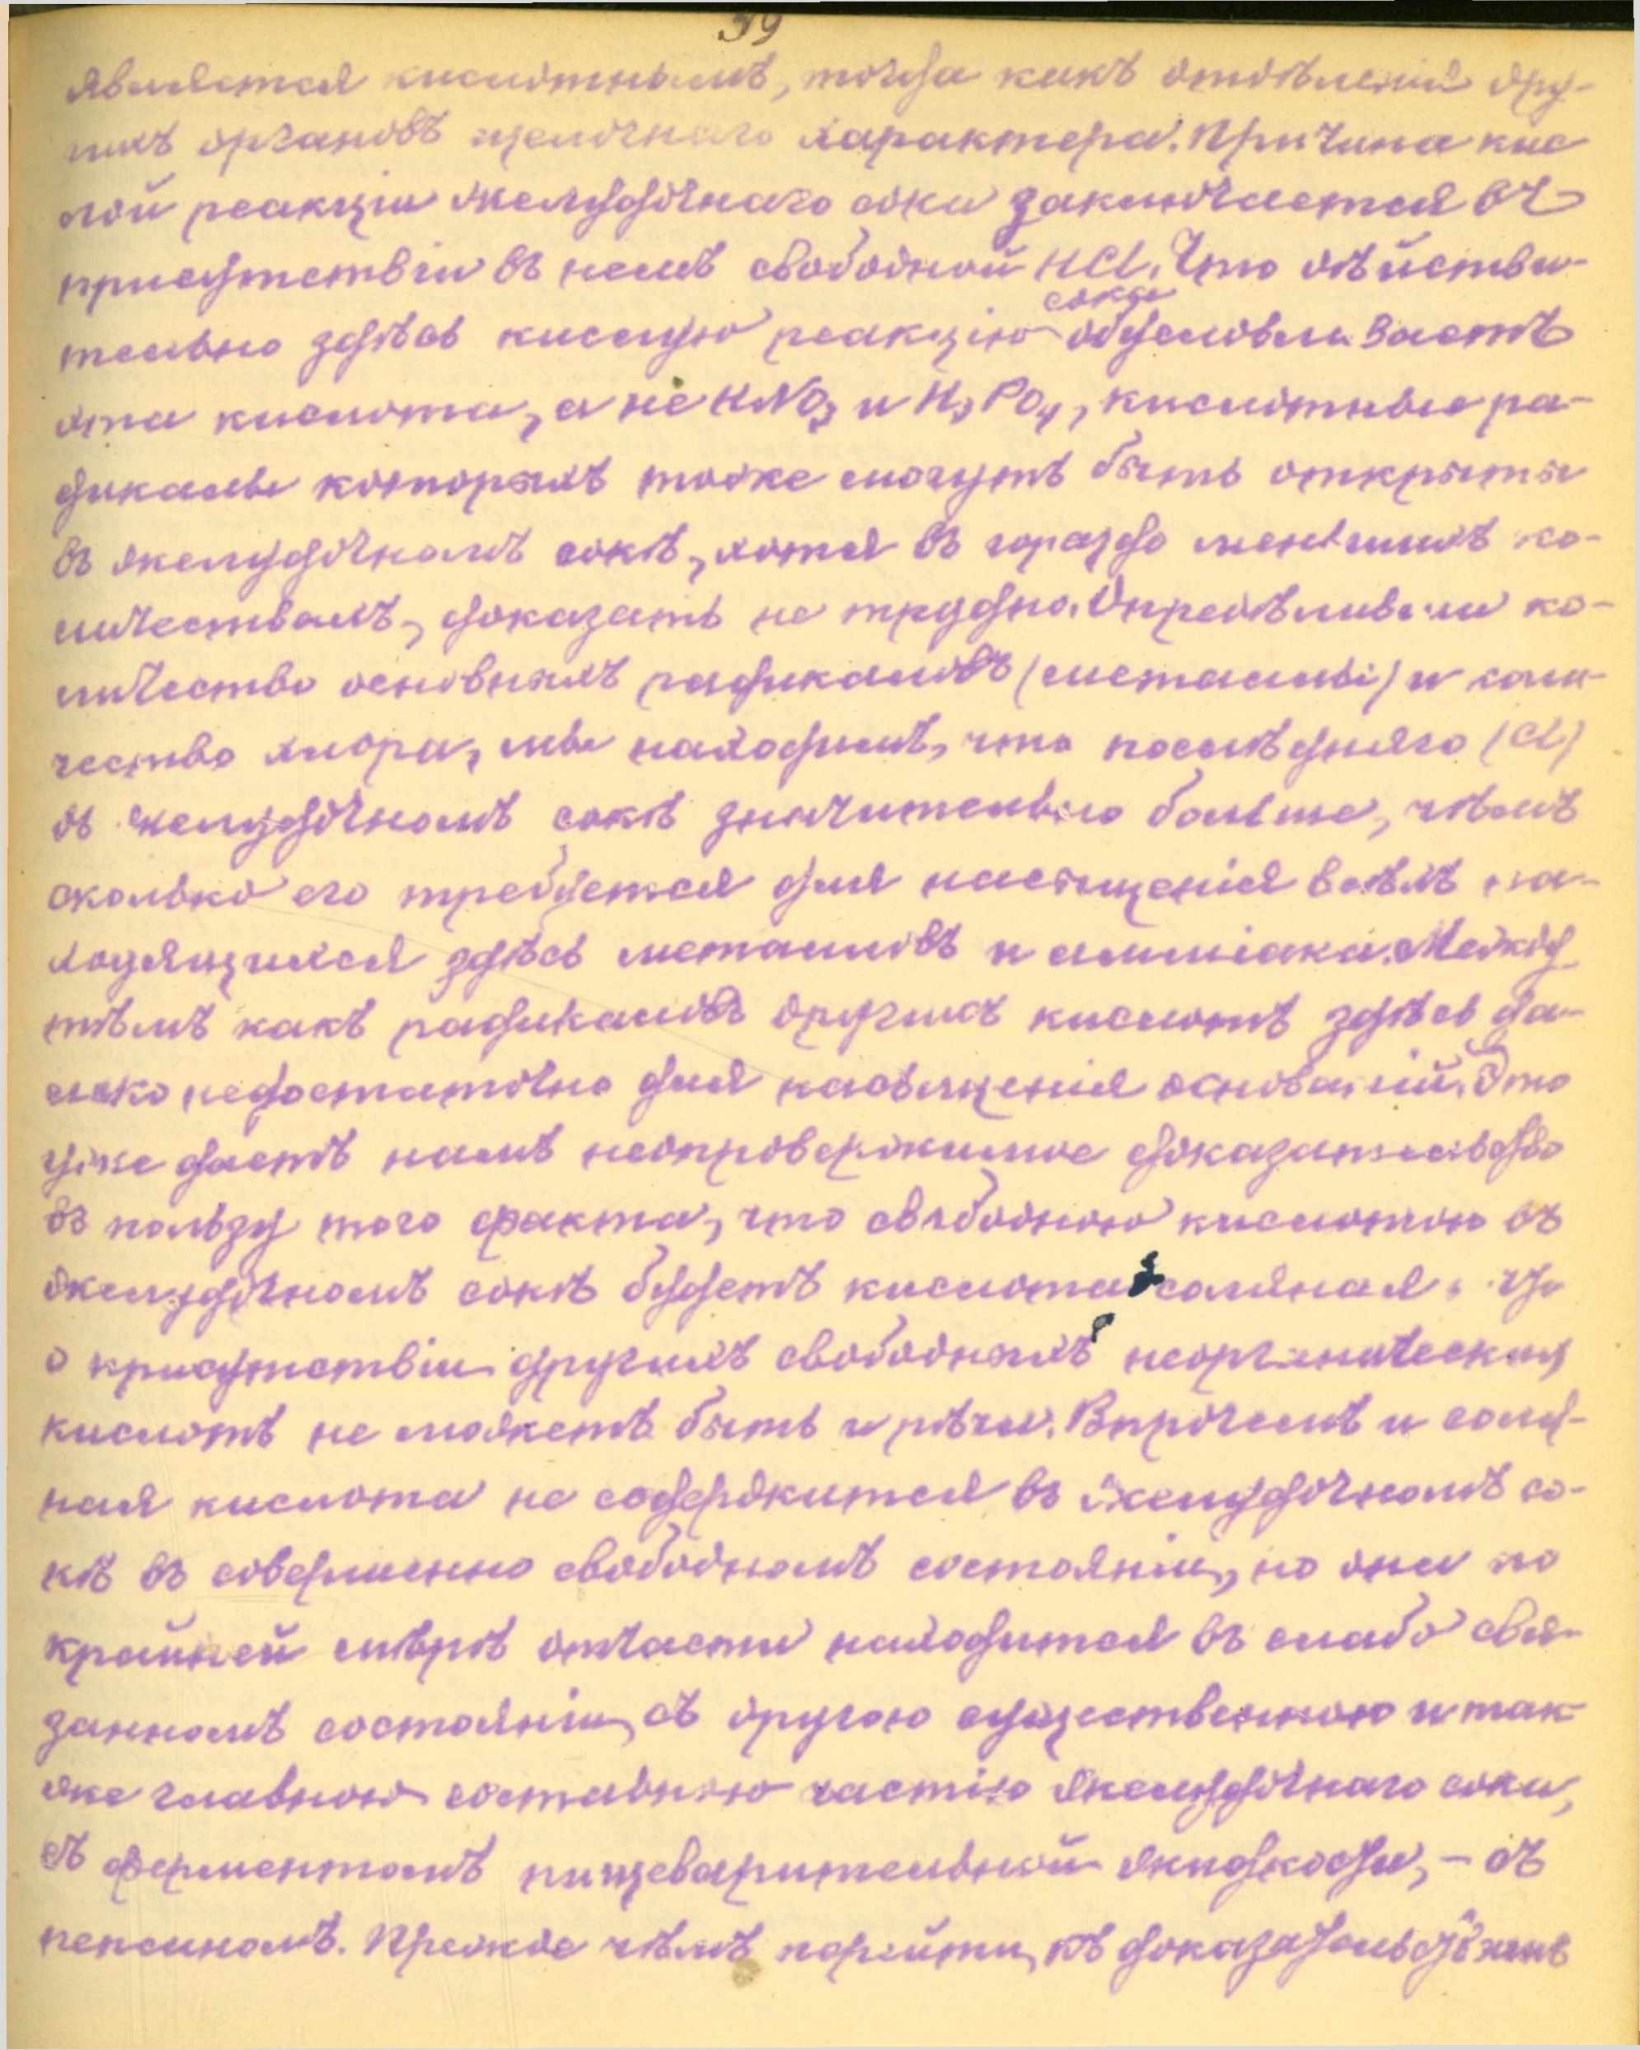 39
является кислотнымъ, тогда какъ отдѣленія дру-
гихъ органовъ щелочнаго характера. Причина кис
лой реакціи желудочнаго сока заключается въ
присутствіи въ немъ свободной HCl. Что дѣйстви-
тельно здѣсь кислую реакцію сока обусловливаетъ
эта кислота, а не HNO3 и H3PO4, кислотные ра-
дикалы которыхъ тоже могутъ быть открыты
въ желудочномъ сокѣ, хотя въ гораздо меньшихъ ко-
личествахъ, доказать не трудно. Опредѣливши ко-
личество основныхъ радикаловъ (металлы) и коли-
чество хлора, мы находимъ, что послѣдняго (Cl)
въ желудочномъ сокѣ значительно больше, чѣмъ
сколько его требуется для насыщенія всѣхъ на-
ходящихся здѣсь металловъ и амміака. Между
тѣмъ какъ радикаловъ другихъ кислотъ здѣсь да-
леко недостаточно для насыщенія основаній. Это
уже даетъ намъ неопровержимое доказательство
въ пользу того факта, что свободною кислотою въ
желудочномъ сокѣ будетъ кислота соляная,
о присутствіи другихъ свободныхъ неорганических
кислотъ не можетъ быть и рѣчи. Впрочемъ и соля-
ная кислота не содержится въ желудочномъ со-
кѣ въ совершенно свободномъ состояніи, но она по
крайней мѣрѣ отчасти находится въ слабо свя-
занномъ состояніи, съ другою существенною и так
же главною составною частію желудочнаго сока,
съ ферментомъ пищеварительной жидкости, – съ
пепсиномъ. Прежде чѣмъ перейти къ